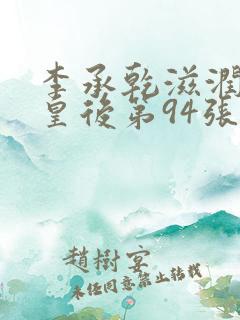 李承乾滋潤
皇後第94張
趙樹宴
未任同意禁止转载